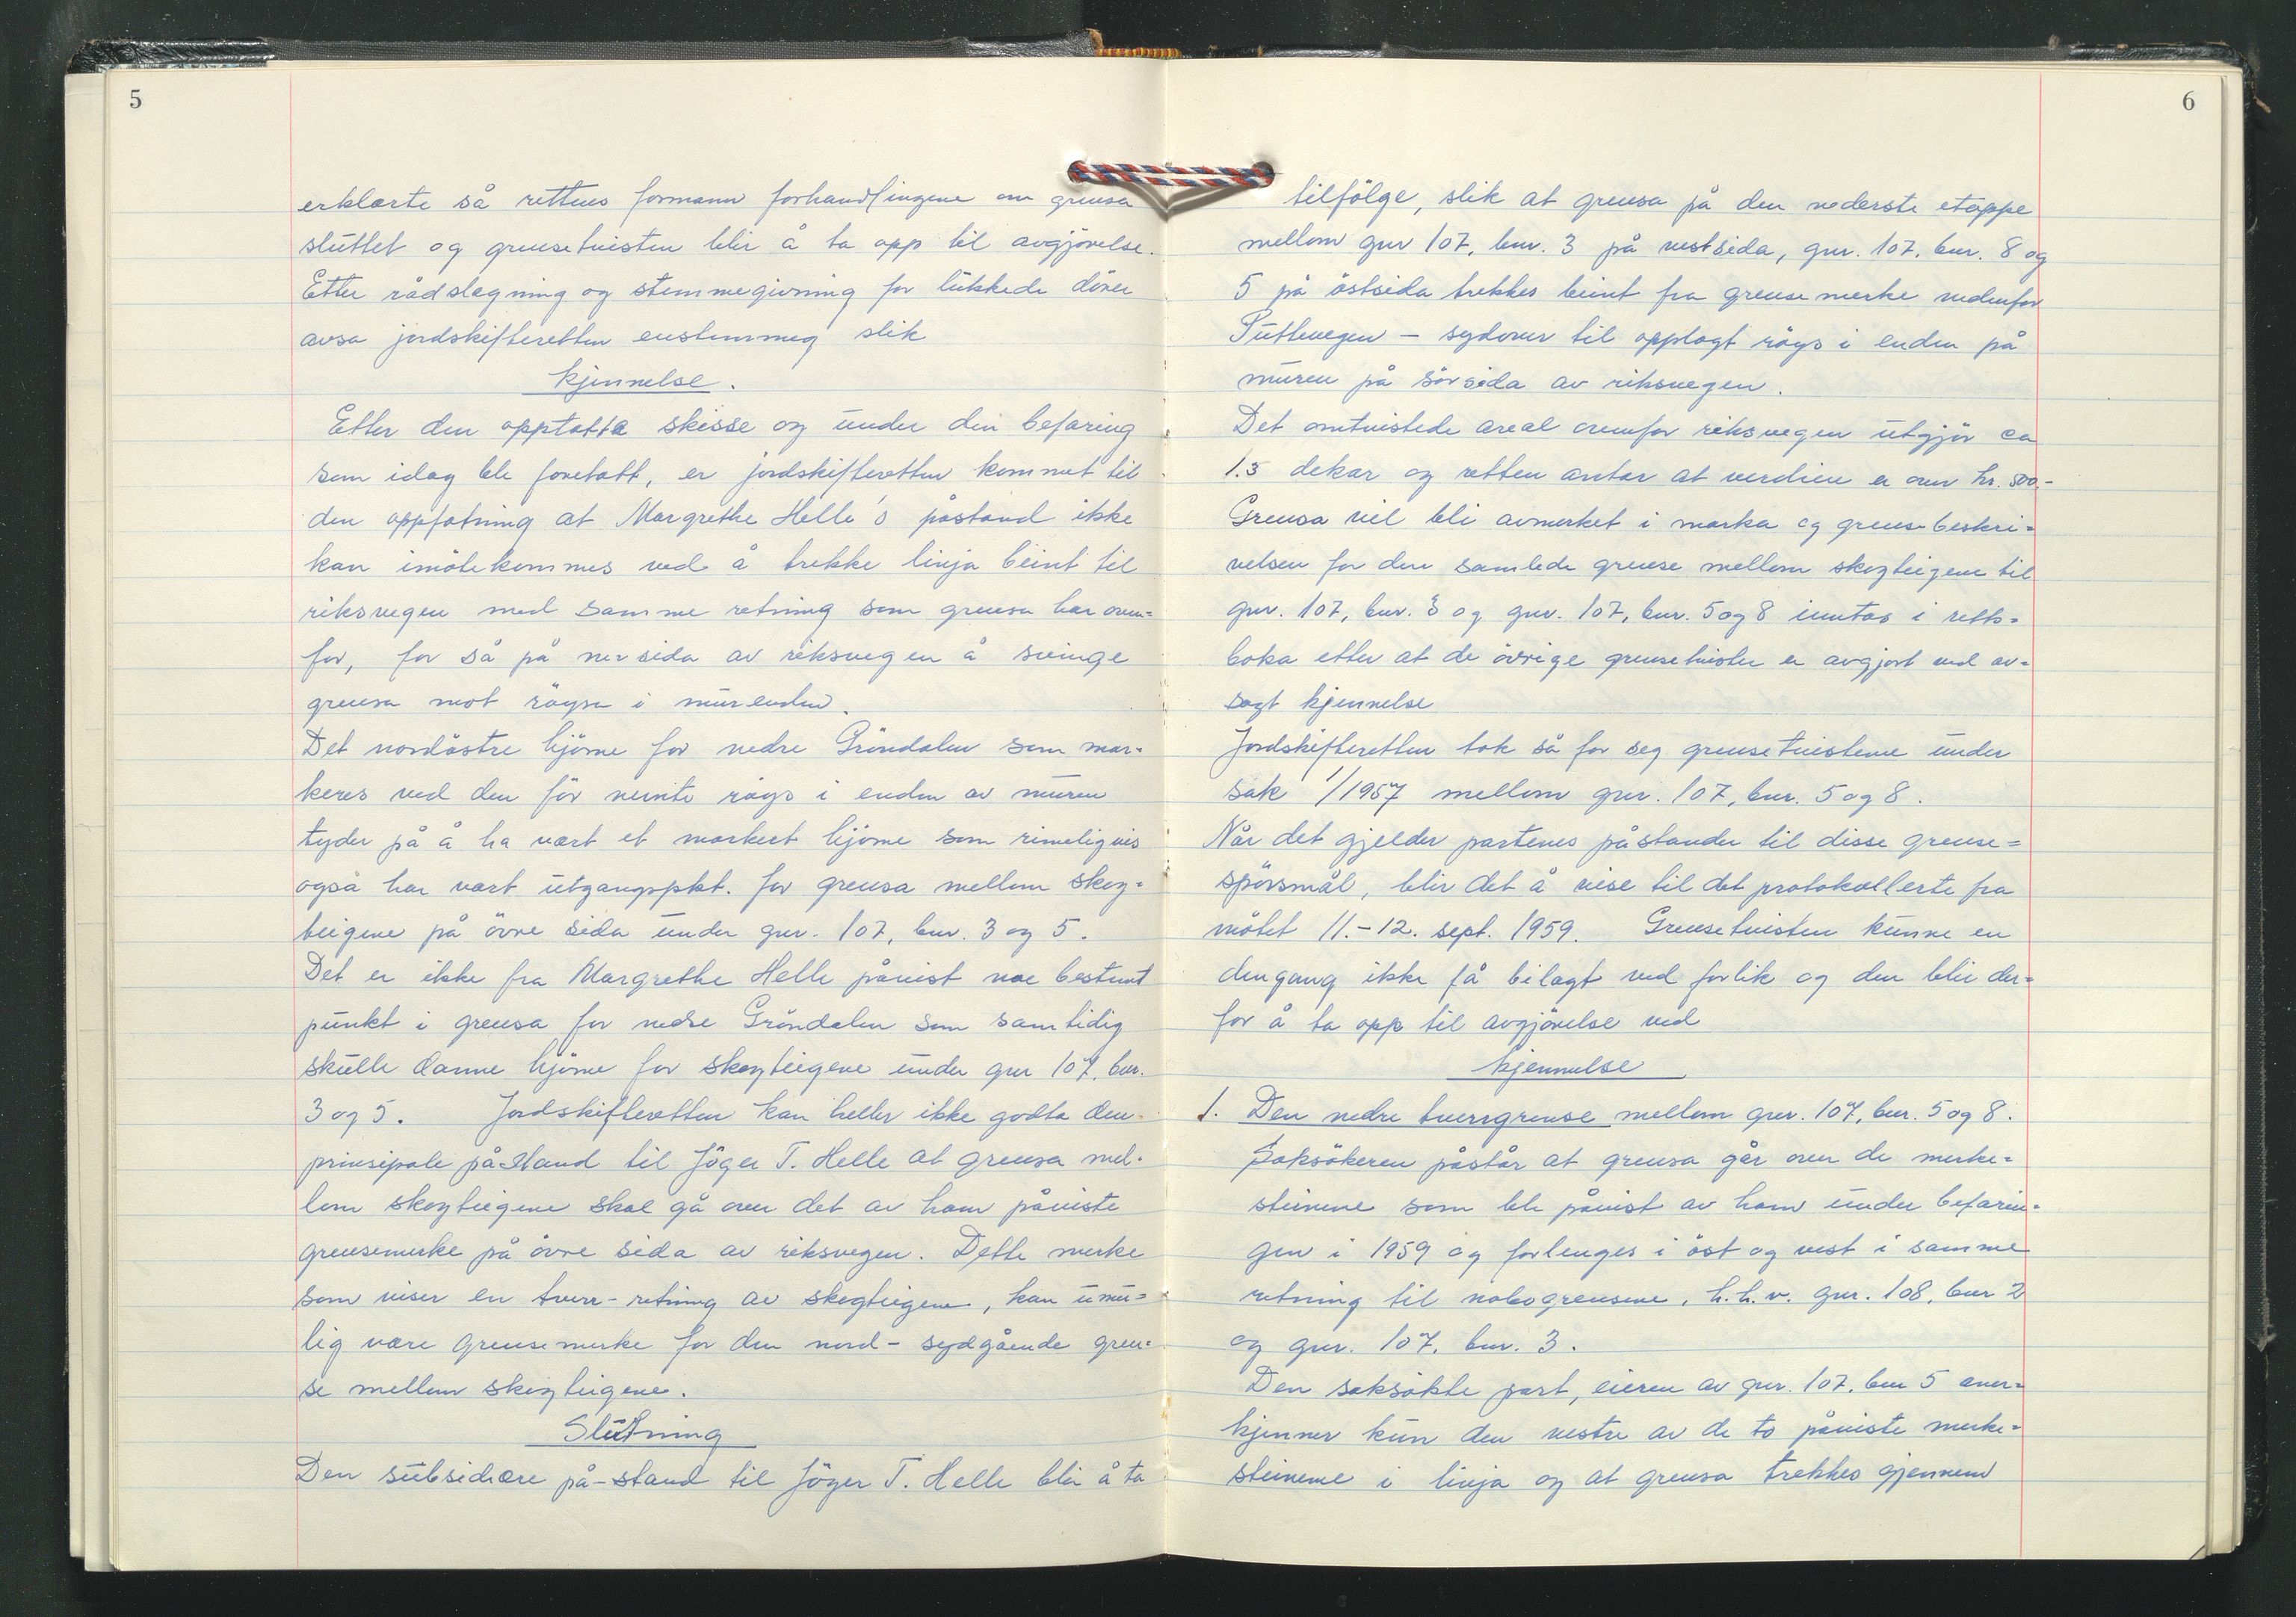 5
erklærte så rettens formann forhandlingene om grensa
sluttet og grensetvisten blir å ta opp til avgjörelse.
Etter rådslagning og stemmegivning for lukkede dörer
avsa jordskifteretten enstemmig slik
kjennelse.
Etter den opptatte skisse og under den befaring
som idag ble foretatt, er jordskifteretten kommet til
den oppfatning at Margrethe Helle's påstand ikke
kan imötekommes ved å trekke linja beint til
riksvegen med samme retning som grensa har oven=
for, for så på ner sida av riksvegen å svinge
grensa mot röysa i murenden.
Det nordöstre hjörne for nedre Gröndalen som mar-
keres ved den för nevnte röys i enden av muren
tyder på å ha vært et markert hjörne som rimeligvis
også har vært utgangspkt. for grensa mellom skog-
teigene på övre sida under gnr. 107, bnr. 3 og 5.
Det er ikke fra Margrethe Helle påvist noe bestemt
punkt i grensa for nedre Gröndalen som samtidig
skulle danne hjörne for skogteigene under gnr 107, bnr.
3 og 5. Jordskifteretten kan heller ikke godta den
prinsipale på-stand til Jöger T. Helle at grensa mel-
lom skogteigene skal gå over det av ham påviste
grensemerke på övre sida av riksvegen. Dette merke
som viser en tverr-retning av skogteigene, kan umu=
lig være grensemerke for den nord- sydgående gren=
se mellom skogteigene.
Slutning
Den subsidiære på-stand til Jöger T. Helle blir å ta
6
tilfölge, slik at grensa på den nederste etappe
mellom gnr 107, bnr. 3 på vestsida, gnr. 107, bnr. 8 og
5 på östsida trekkes beint fra grensemerke nedenfor
Puttevegen - sydover til opplagt röys i enden på
muren på sörsida av riksvegen.
Det omtvistede areal ovenfor riksvegen utgjör ca
1.5 dekar og retten antar at verdien er over kr. 500.-
Grensa vil bli avmerket i marka og grensebeskri=
velsen for den samlede grense mellom skogteigene til
gnr. 107, bnr. 3 og gnr. 107, bnr. 5 og 8 inntas i retts-
boka etter at de övrige grensetvister er avgjort ved av=
sagt kjennelse
Jordskifteretten tok så for seg grensetvistene under
sak 1/1957 mellom gnr. 107, bnr. 5 og 8.
Når det gjelder partenes påstander til disse grense=
spörsmål, blir det å vise til det protokollerte fra
mötet 11.-12. sept. 1959. Grensetvisten kunne en
dengang ikke få bilagt ved forlik og den blir der=
for å ta opp til avgjörelse ved
kjennelse
1. Den nedre tverrgrense mellom gnr. 107, bnr. 5 og 8.
Saksökeren påstår at grensa går over de merke=
steinene som ble påvist av ham under befarin=
gen i 1959 og forlenges i öst og vest i samme
retning til nabogrensene, h.h.v. gnr. 108, bnr 2
og gnr. 107, bnr. 3.
Den saksökte part, eieren av gnr. 107, bnr 5 aner=
kjenner kun den vestre av de to påviste merke=
steinene i linja og at grensa trekkes gjennem